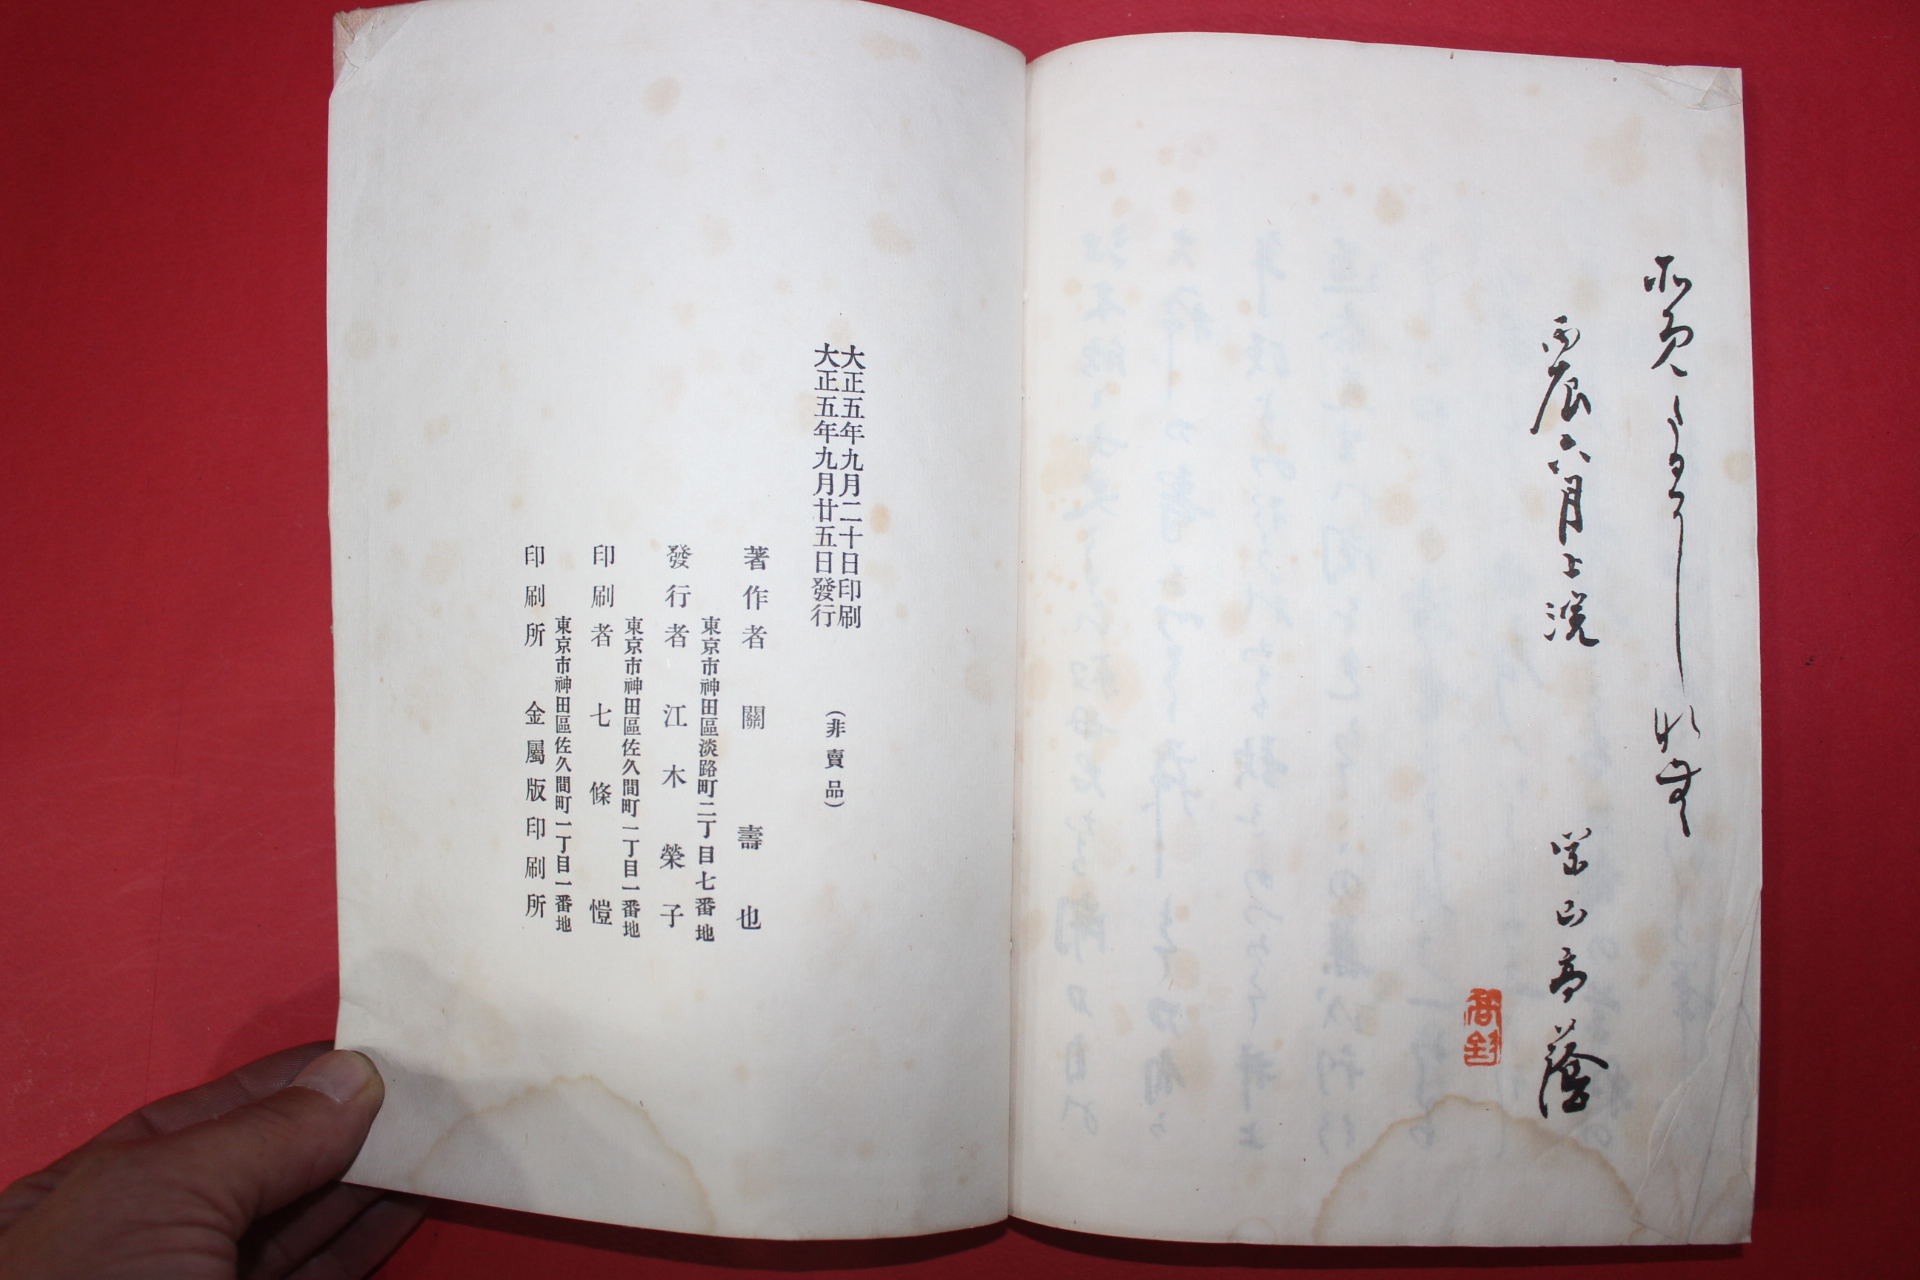 丙辰六月上浣
岡山高蔭
大正五年九月二十日印刷
大正五年九月廿五日發行
(非賣品)
著作者 關壽也
東京市神田區淡路町二丁目七番地
發行者 江木榮子
東京市神田區佐久間町二丁目一番地
印刷者 七條愷
東京市神田區佐久間町二丁目一番地
印刷所 金屬版印刷所